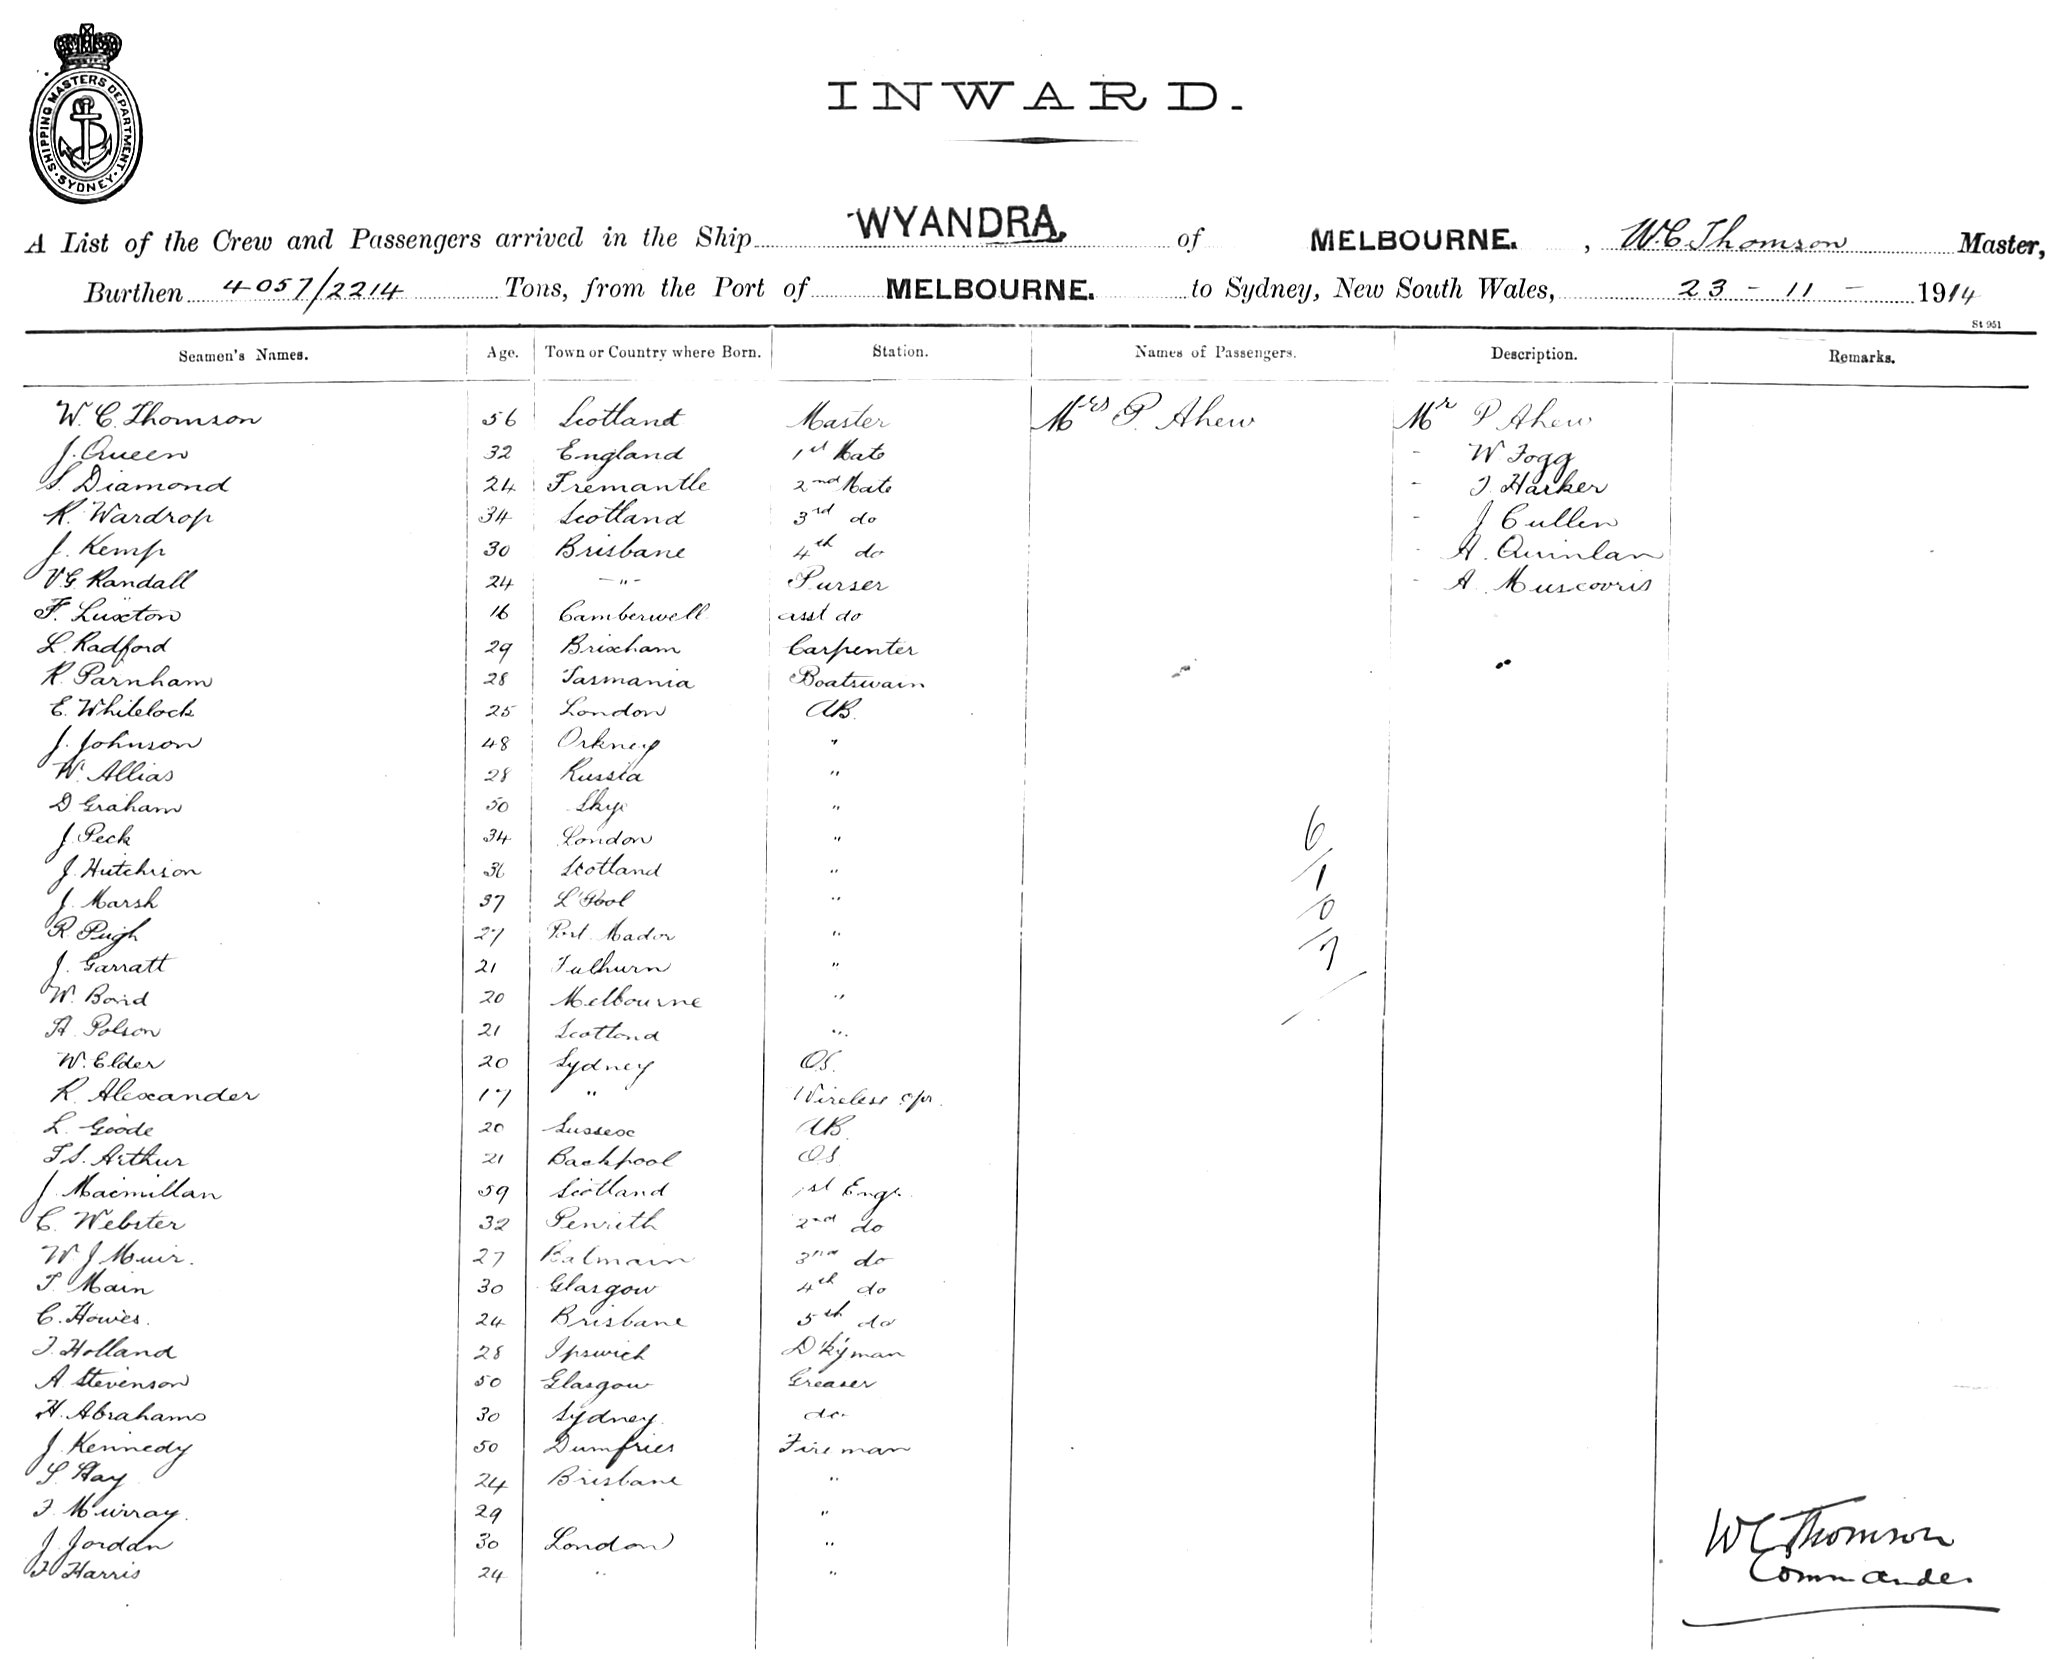 SHIPPING MASTERS DEPARTMENT · SYDNEY ·
INWARD.
A List of the Crew and Passengers arrived in the Ship WYANDRA, of MELBOURNE. , W.C. Thomson Master,
Burthen 4057/2214 Tons, from the Port of MELBOURNE. to Sydney, New South Wales, 23 - 11 - 1914
St 951
Seamen's Names. Age. Town or Country where Born. Station. Names of Passengers. Description. Remarks.
W. C. Thomson 56 Scotland Master Mrs P. Ahew Mr P Ahew
J. Queen 32 England 1st Mate - W Fogg
S. Diamond 24 Fremantle 2nd Mate - J. Harker
R. Wardrop 34 Scotland 3rd do - J Cullen
J. Kemp 30 Brisbane 4th do - A. Quinlan
V.G Randall 24 -"- Purser - A. Muscovris
F. Luxton 16 Camberwell asst do
L. Radford 29 Brixham Carpenter
R. Parnham 28 Tasmania Boatswain
E. Whitelock 25 London AB.
J. Johnson 48 Orkney "
W. Allias 28 Russia "
D Graham 50 Skye "
J. Peck 34 London " 6
J. Hutchison 36 Scotland " 1
J. Marsh 37 L'Pool " 0
R Pugh 27 Port Mador " 7
J. Garratt 21 "
W. Baird 20 Melbourne "
A. Polson 21 Scotland "
W. Elder 20 Sydney OS.
R. Alexander 17 " Wireless opr.
L. Goode 20 Sussex AB
T.S. Arthur 21 Backpool OS
J Macmillan 59 Scotland 1st Engr.
C. Webster 32 Penrith 2nd do
W. J Muir. 27 Balmain 3rd do
T. Main 30 Glasgow 4th do
C. Howes. 24 Brisbane 5th do
J. Holland 28 Ipswich Dkyman
A Stevenson 50 Glasgow Greaser
H. Abrahams 30 Sydney. do.
J. Kennedy 50 Dumfries Fireman
S. Hay 24 Brisbane "
J. Murray. 29 "
J. Jordan 30 London "
J Harris 24 " "
W C Thomson
Commander